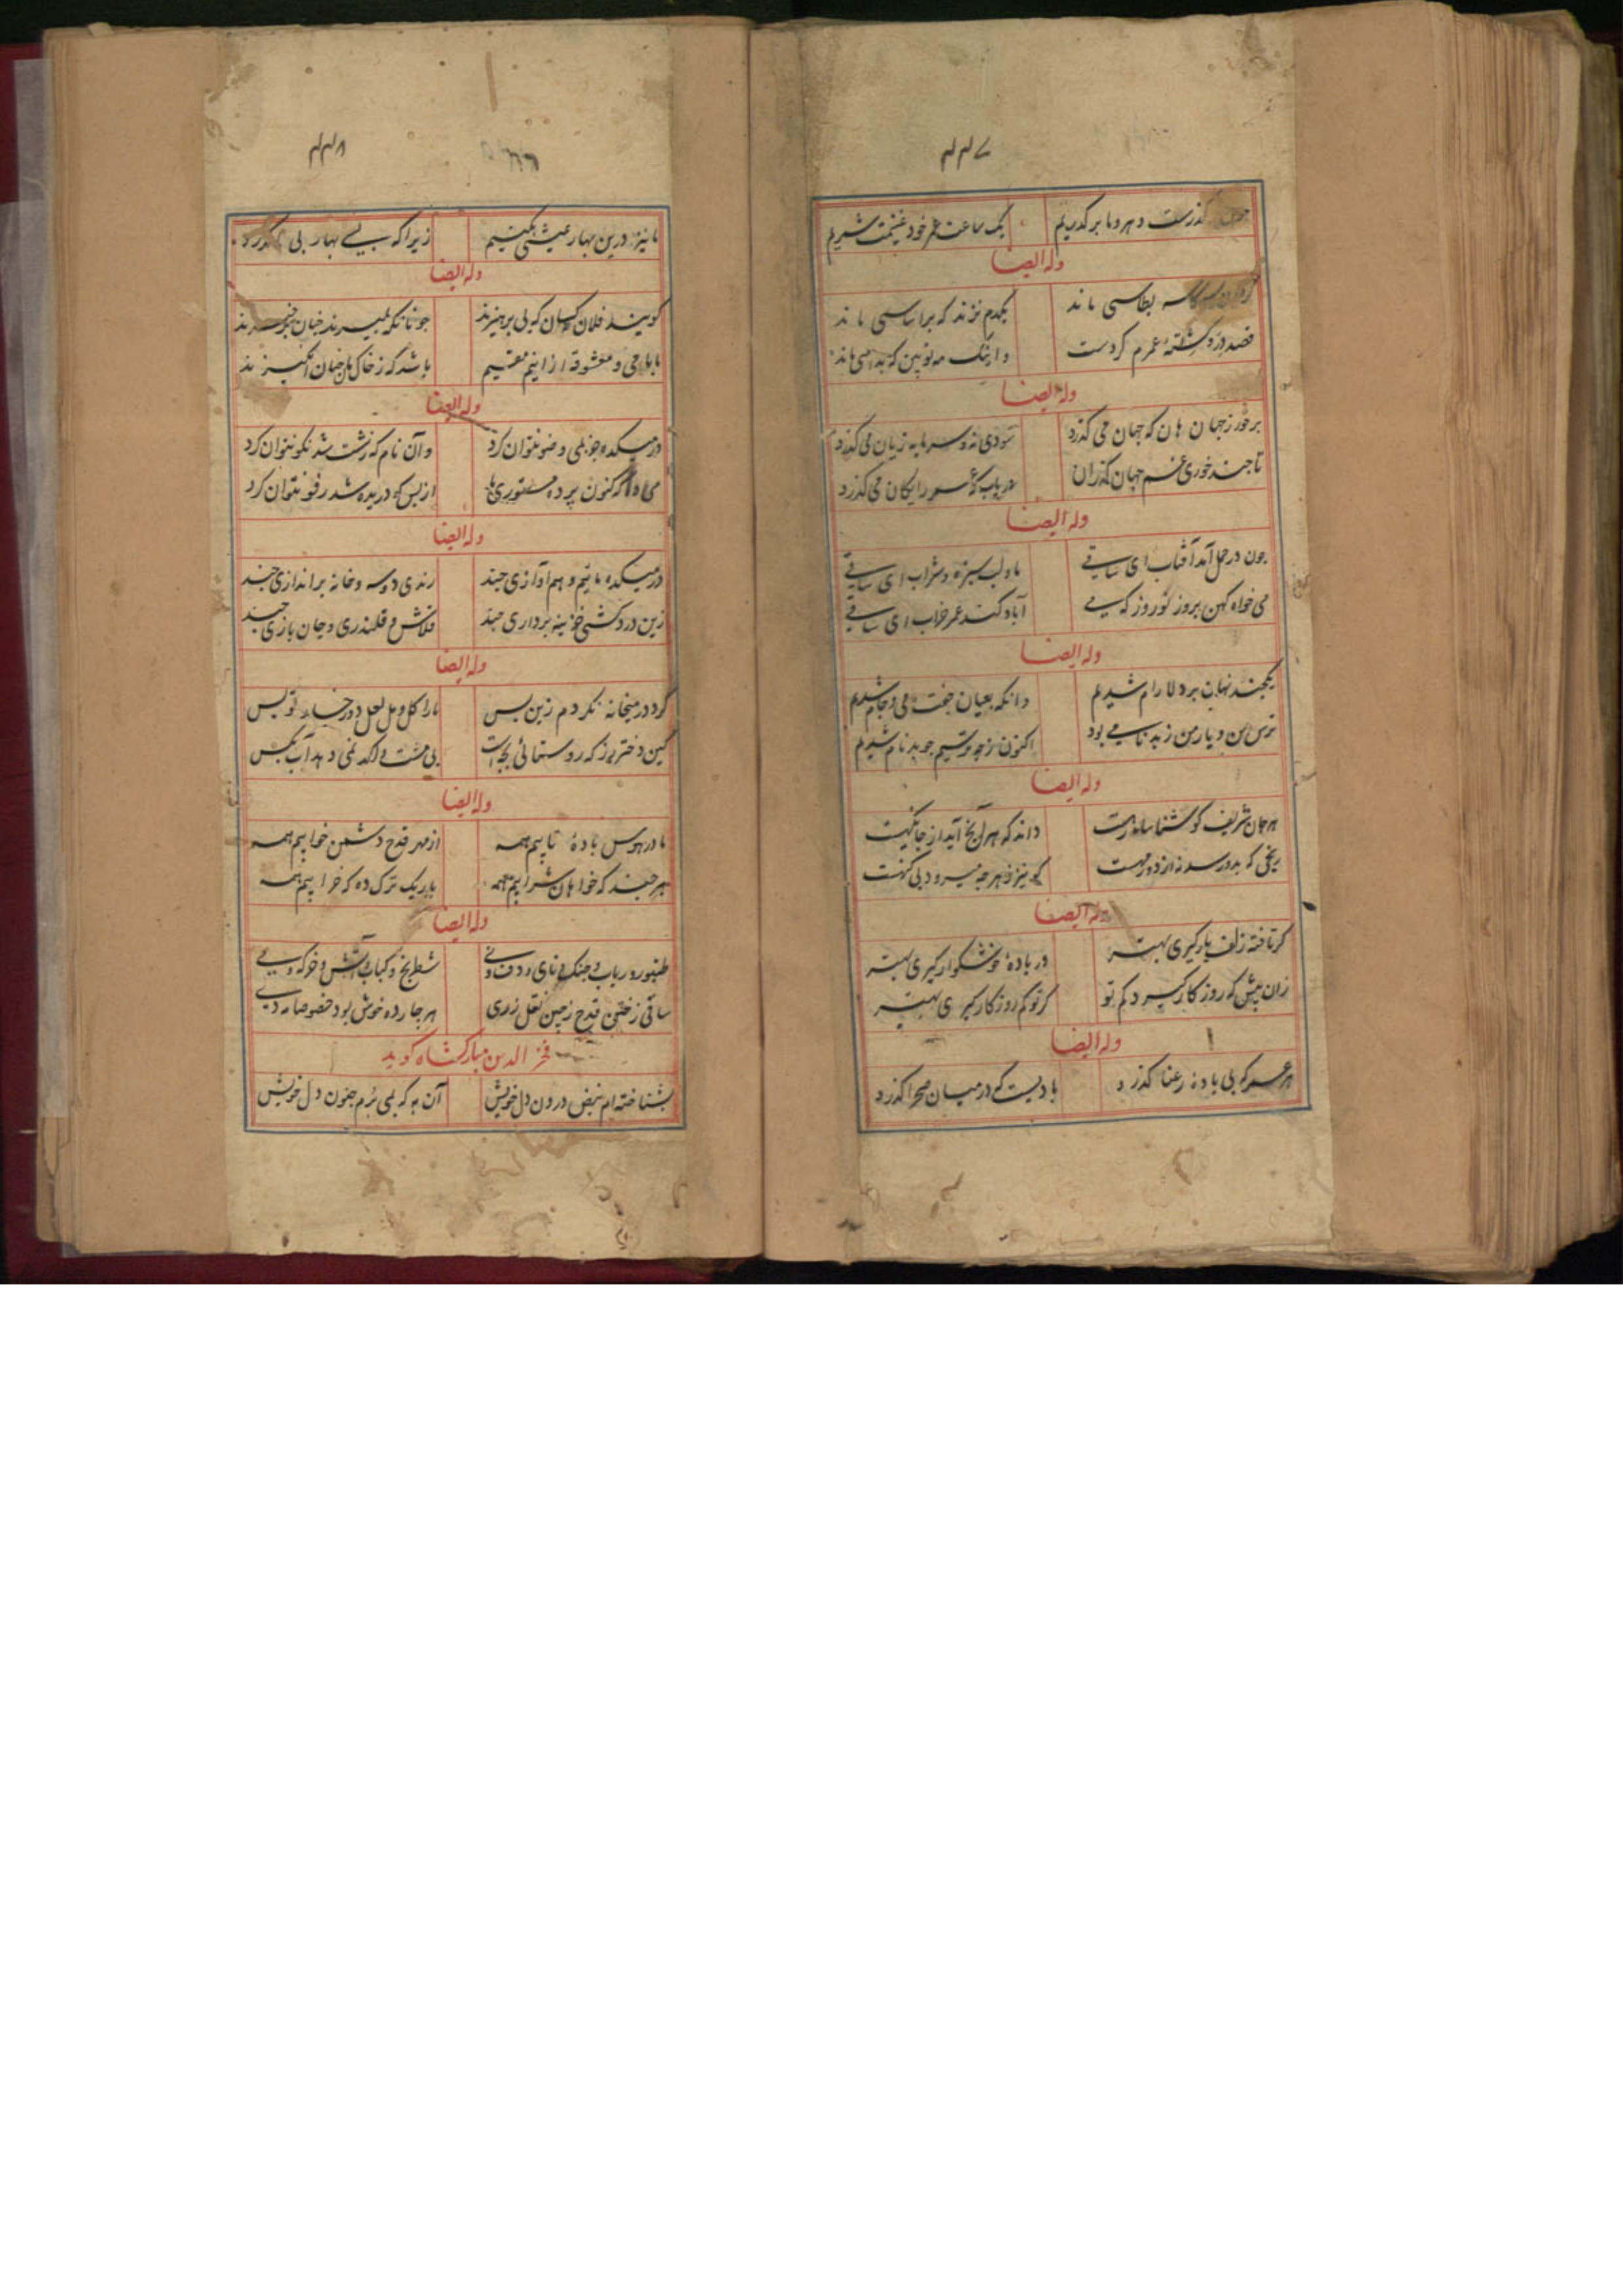 ۴۴۷
جون گذرست دهر و ما برگذریم یک ساعت عمر خود غنیمت شمریم
وله ایضا
گردان بطاسی ماند یکدم نزند که بر اساسی ماند
قصد درو کشتهٔ عمرم کردست واینک مه نو ببین که بداسی ماند
وله ایضا
برخور ز جهان هان که جهان می گذرد سودی نه و سرمایه زیان می گذرد
تا جند خوری غم جهان گذران دریاب که عمر رایکان می گذرد
وله ایضا
جون در حمل آمد آفتاب ای ساقی ما و لب سبزه و شراب ای ساقی
می خواه کهن بروز نوروز که می آباد کند عمر خراب ای ساقی
وله ایضا
یکجند نهان بر دلارام شدیم وانکه بعیان جفت می و جام شدیم
ترس من و یار من ز بدنامی بود اکنون ز چه ترسیم جو بدنام شدیم
وله ایضا
هر جان شریف کو شناساء رهست داند که هر آنج آید از جایکهیست
گر تافته زلف یار کیری بهتر ور بادهٔ خوشکوار کیری بهتر
زان پیش که روزکار کیرد کم تو گر تو کم روزکار کیری بهتر
وله ایضا
هر عمر که بی بادهٔ رعنا گذرد بادیست که در میان صحرا گذرد
۴۴۸
ما نیز درین بهار عیشی بکنیم زیرا که بسی بهار بی ما گذرد
وله ایضا
گویند فلان کسان که بی پرهیزند جونانکه بمیرند جنان برخیزند
ما با می و معشوقه ازانیم مقیم باشد که ز خاک مان جنان انگیزند
وله ایضا
در میکده جز بمی وضو نتوان کرد وان نام که زشت شد نکو نتوان کرد
می ده که کنون پردهٔ مستوری ما از بس که دریده شد رفو نتوان کرد
وله ایضا
در میکده مائیم و هم آوازی جند رندی دو سه و خانه براندازی جند
زین دردکشی خزینه برداری جند قلاش و قلندری و جان بازی جند
وله ایضا
گرد در میخانه نکردم زین بس ما را گل و مل لعل و رخسار تو بس
کین دختر رز که روستائی بچه است بی مشت و لکد نمی دهد آب بکس
وله ایضا
ما در هوس بادهٔ نابیم همه از مهر قدح دشمن خوابیم همه
هر جند که خواهان شرابیم همه باریک ترک ده که خرابیم همه
وله ایضا
طنبور و رباب و جنک و نای و دف و نی شطرنج و کباب و آتش و خرکه و می
هر جا رده خوش بود خصوصا مه دی
فخر الدین مبارکشاه گوید
بشناخته ام نبض درون دل خویش آن به که بمی برم جنون دل خویش